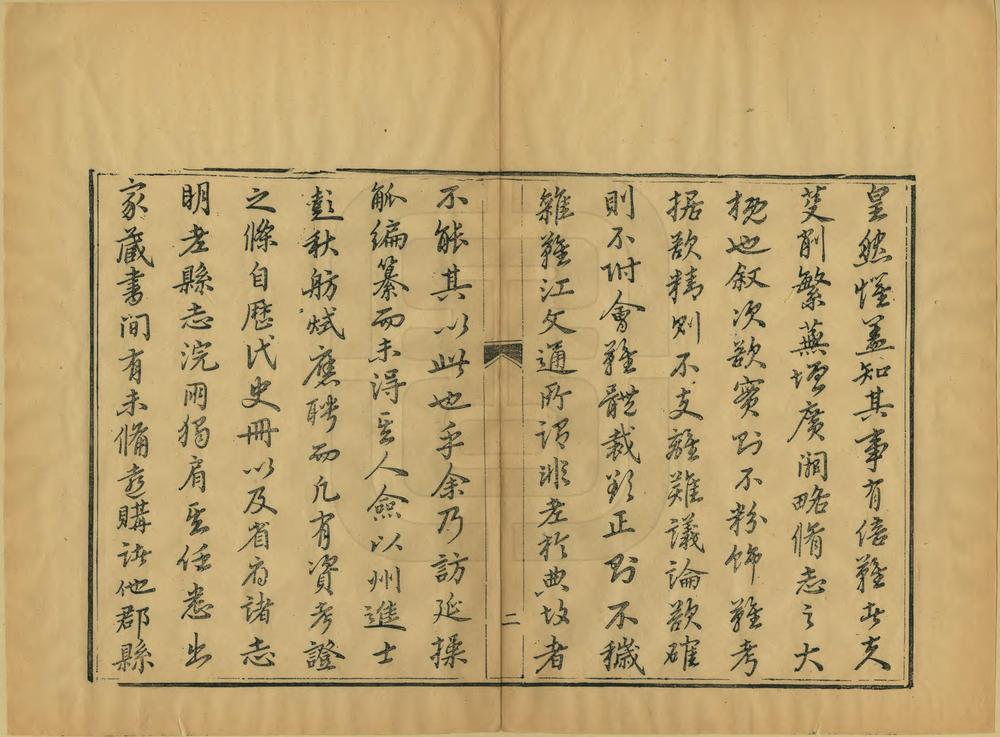 皇然惶蓋知其事有倍難者夫
芟削繁蕪增廣闕略脩志之大
槪也叙次欲實則不粉飾難考
据欲精則不支離難議論欲確
則不附會難體裁欲正則不穢
雜難江文通所謂非老於典故者
二
不能其以此也乎余乃訪延操
觚編纂而未得其人僉以州進士
彭秋舫斌應聘而凡有資考證
之條自歷代史冊以及省府諸志
明老縣志浣雨獨肩其任悉出
家藏書間有未備遠購諸他郡縣